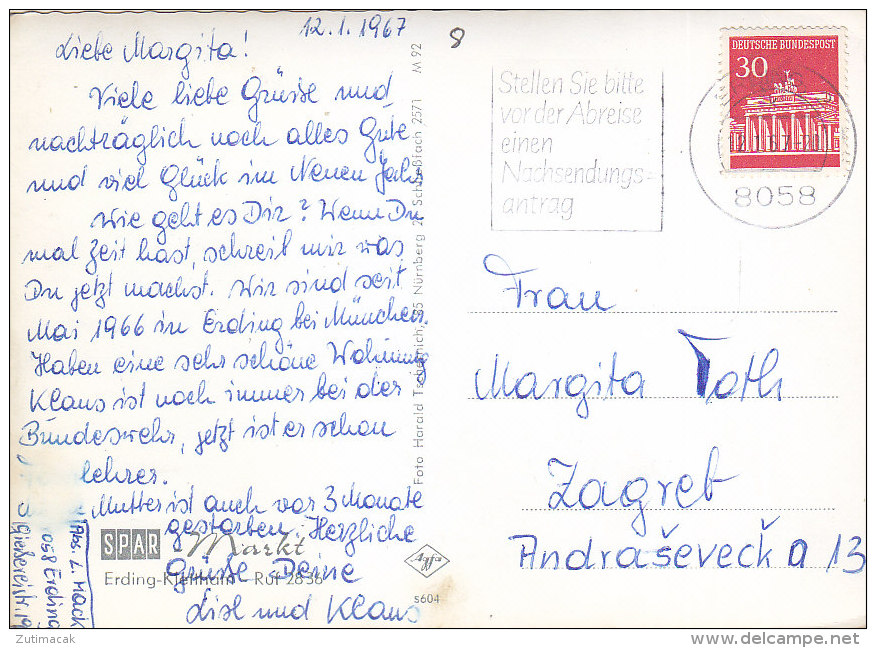 12.1.1967
8
Liebe Margita!
Viele liebe Grüsse und
nachträglich noch alles Gute
und viel Glück im Neuen Jahr
Wie geht es Dir? Wenn Du
mal Zeit hast, schreib mir was
Du jetzt machst. Wir sind seit
Mai 1966 in Erding bei München.
Haben eine sehr schöne Wohnung
Klaus ist noch immer bei der
Bundeswehr, jetzt ist er schon
Lehrer.
Mutter ist auch vor 3 Monate
gestorben. Herzliche
Grüsse Deine
Lisl und Klaus
Abs. L. Mack
8058 Erding
SPAR Markt
Erding-Klettham Ruf 2836
Foto Harald 85 Nürnberg 2 Schließfach 2571 M 92
Agfa
s604
Stellen Sie bitte
vor der Abreise
einen
Nachsendungs=
antrag
DEUTSCHE BUNDESPOST
30
8058
Frau
Margita Toth
Zagreb
Andraševečka 13
Zutimacak
www.delcampe.net